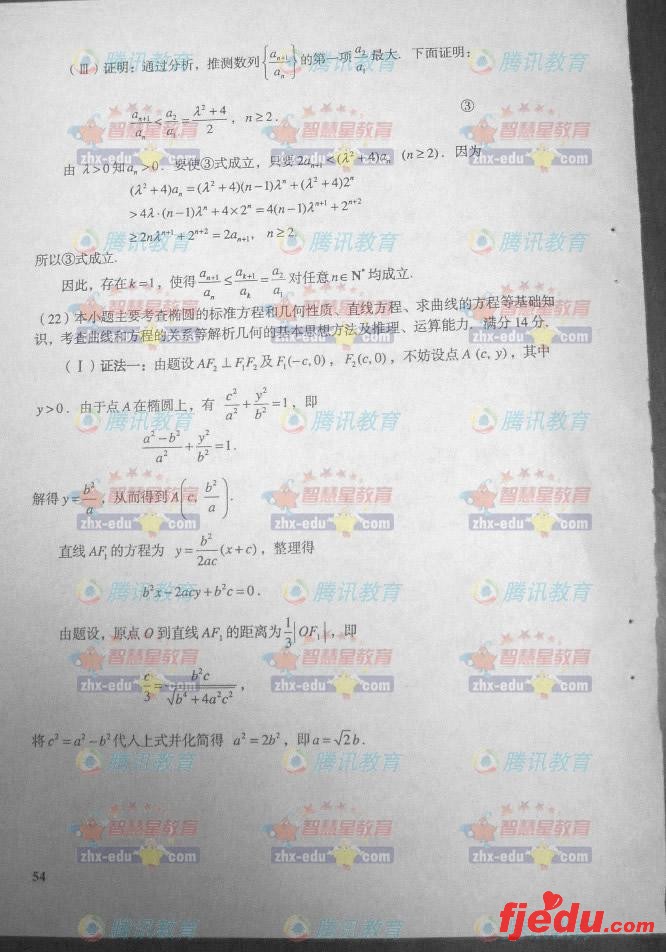 （Ⅲ）证明：通过分析，推测数列{a_{n+1}/a_n}的第一项a_2/a_1最大．下面证明：
a_{n+1}/a_n < a_2/a_1 = (λ²+4)/2，n≥2． ③
由 λ>0知a_n>0．要使③式成立，只要2a_{n+1}<(λ²+4)a_n (n≥2)．因为
(λ²+4)a_n=(λ²+4)(n-1)λ^n+(λ²+4)2^n
>4λ·(n-1)λ^n+4×2^n=4(n-1)λ^{n+1}+2^{n+2}
≥2nλ^{n+1}+2^{n+2}=2a_{n+1}，n≥2，
所以③式成立．
因此，存在k=1，使得a_{n+1}/a_n ≤ a_{k+1}/a_k = a_2/a_1对任意n∈N*均成立．
（22）本小题主要考查椭圆的标准方程和几何性质、直线方程、求曲线的方程等基础知
识，考查曲线和方程的关系等解析几何的基本思想方法及推理、运算能力．满分14分．
（Ⅰ）证法一：由题设AF₂⊥F₁F₂及F₁(-c,0)，F₂(c,0)，不妨设点A (c, y)，其中
y>0．由于点A在椭圆上，有 c²/a²+y²/b²=1，即
(a²-b²)/a²+y²/b²=1．
解得y=b²/a，从而得到A(c, b²/a)．
直线AF₁的方程为 y=b²/(2ac)(x+c)，整理得
b²x-2acy+b²c=0．
由题设，原点O到直线AF₁的距离为1/3|OF₁|，即
c/3=b²c/√(b⁴+4a²c²)，
将c²=a²-b²代入上式并化简得 a²=2b²，即a=√2b．
54
腾讯教育
智慧星教育
zhx-edu com
fjedu.com